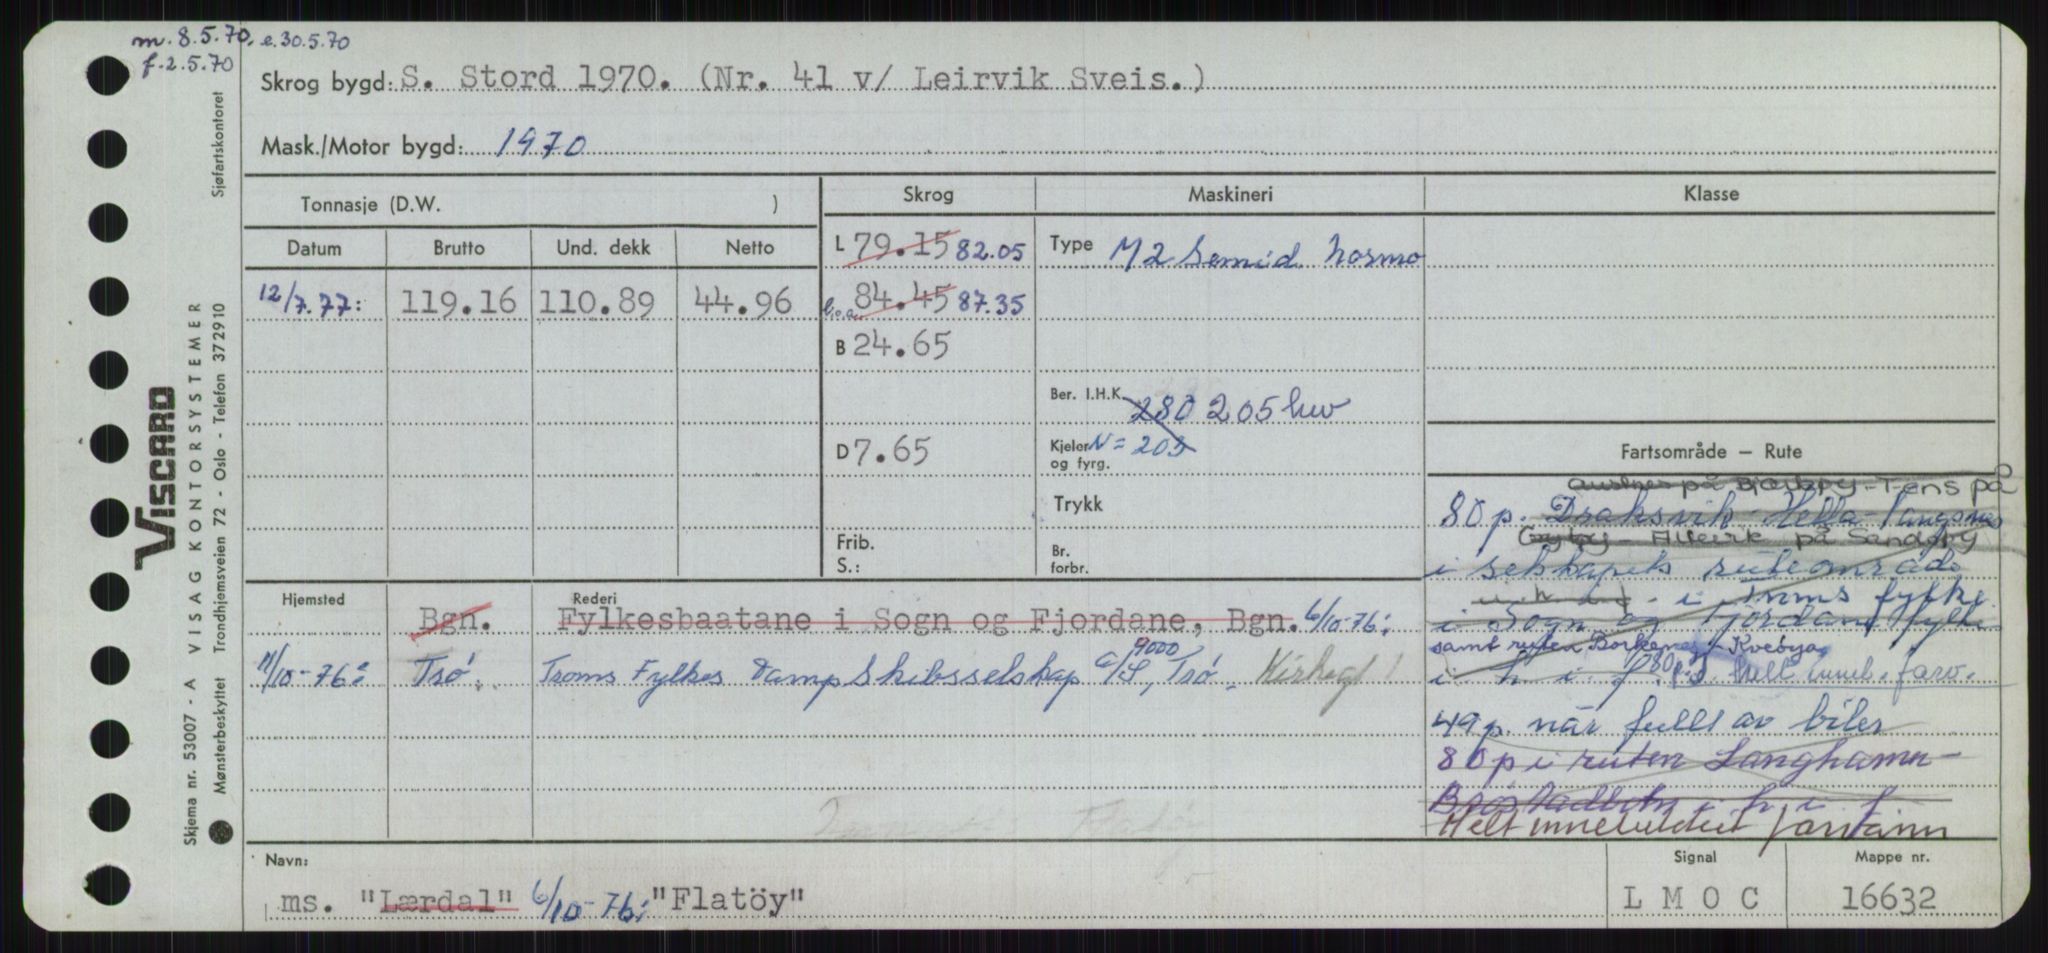 m. 8.5.70, e. 30.5.70
f. 2.5.70
Skrog bygd: S. Stord 1970. (Nr. 41 v/ Leirvik Sveis.)
Mask./Motor bygd: 1970
Tonnasje (D.W. )
Skrog
Maskineri
Klasse
Datum Brutto Und. dekk Netto
L 79.15 82.05
Type M 2 Semid. Normo
12/7.77: 119.16 110.89 44.96
l.o.a. 84.45 87.35
B 24.65
Ber. I.H.K. 280 205 hw
D 7.65
Kjeler N = 205
og fyrg.
Fartsområde – Rute
Trykk
på Bjarkøy - Tens på
80 p. Draksvik - Hella - Vangsnes
Allevik på Sandsøy
Frib.
S.:
Br.
forbr.
i selskapets ruteområde
i Troms fylke
i Sogn og Fjordane fylke
samt ruten Borkenes - Kveøya
i h i f.
49 p. når fullt av biler
80 p i ruten Langhamn -
i h i f.
Helt inneluktet farvann
Hjemsted
Rederi
Bgn. Fylkesbaatane i Sogn og Fjordane, Bgn. 6/10-76:
11/10-76: Trø. Troms Fylkes Dampskibsselskap A/S, 9000 Trø.
Navn:
ms. "Lærdal" 6/10-76: "Flatöy"
Signal
L M O C
Mappe nr.
16632
VISCARD
VISAG KONTORSYSTEMER
Sjøfartskontoret
Trondhjemsveien 72 - Oslo - Telefon 372910
Skjema nr. 53007 - A
Mønsterbeskyttet